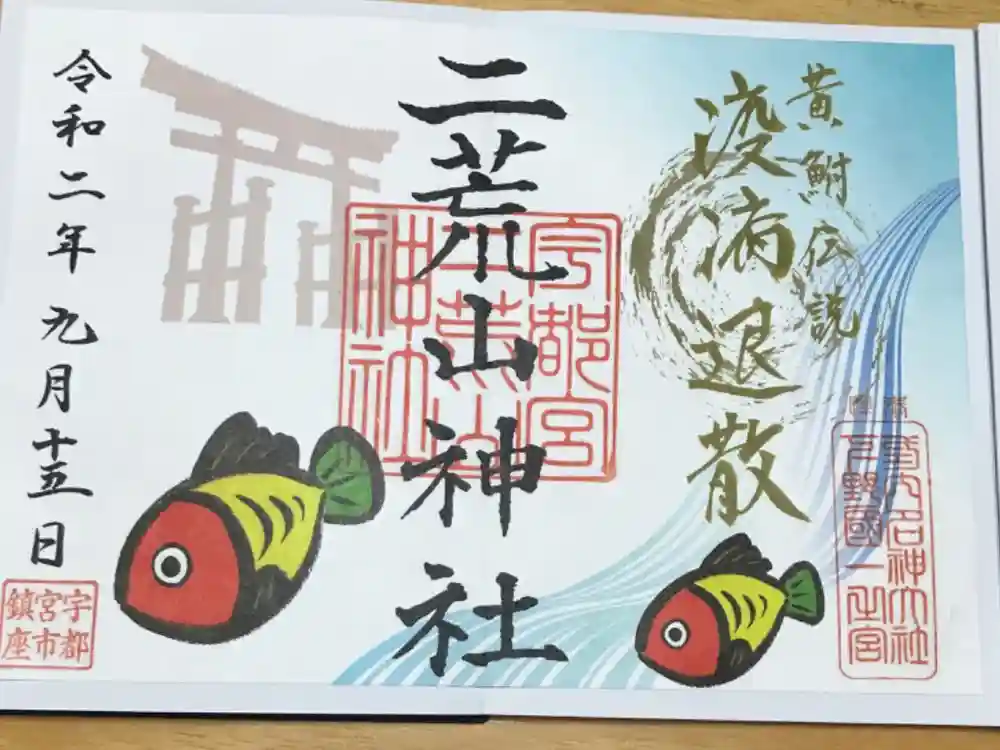 黄鮒伝説
疫病退散
式内名神大社
下野國一之宮
二荒山神社
宇都宮
二荒山
神社
令和二年九月十五日
宇都
宮市
鎮座